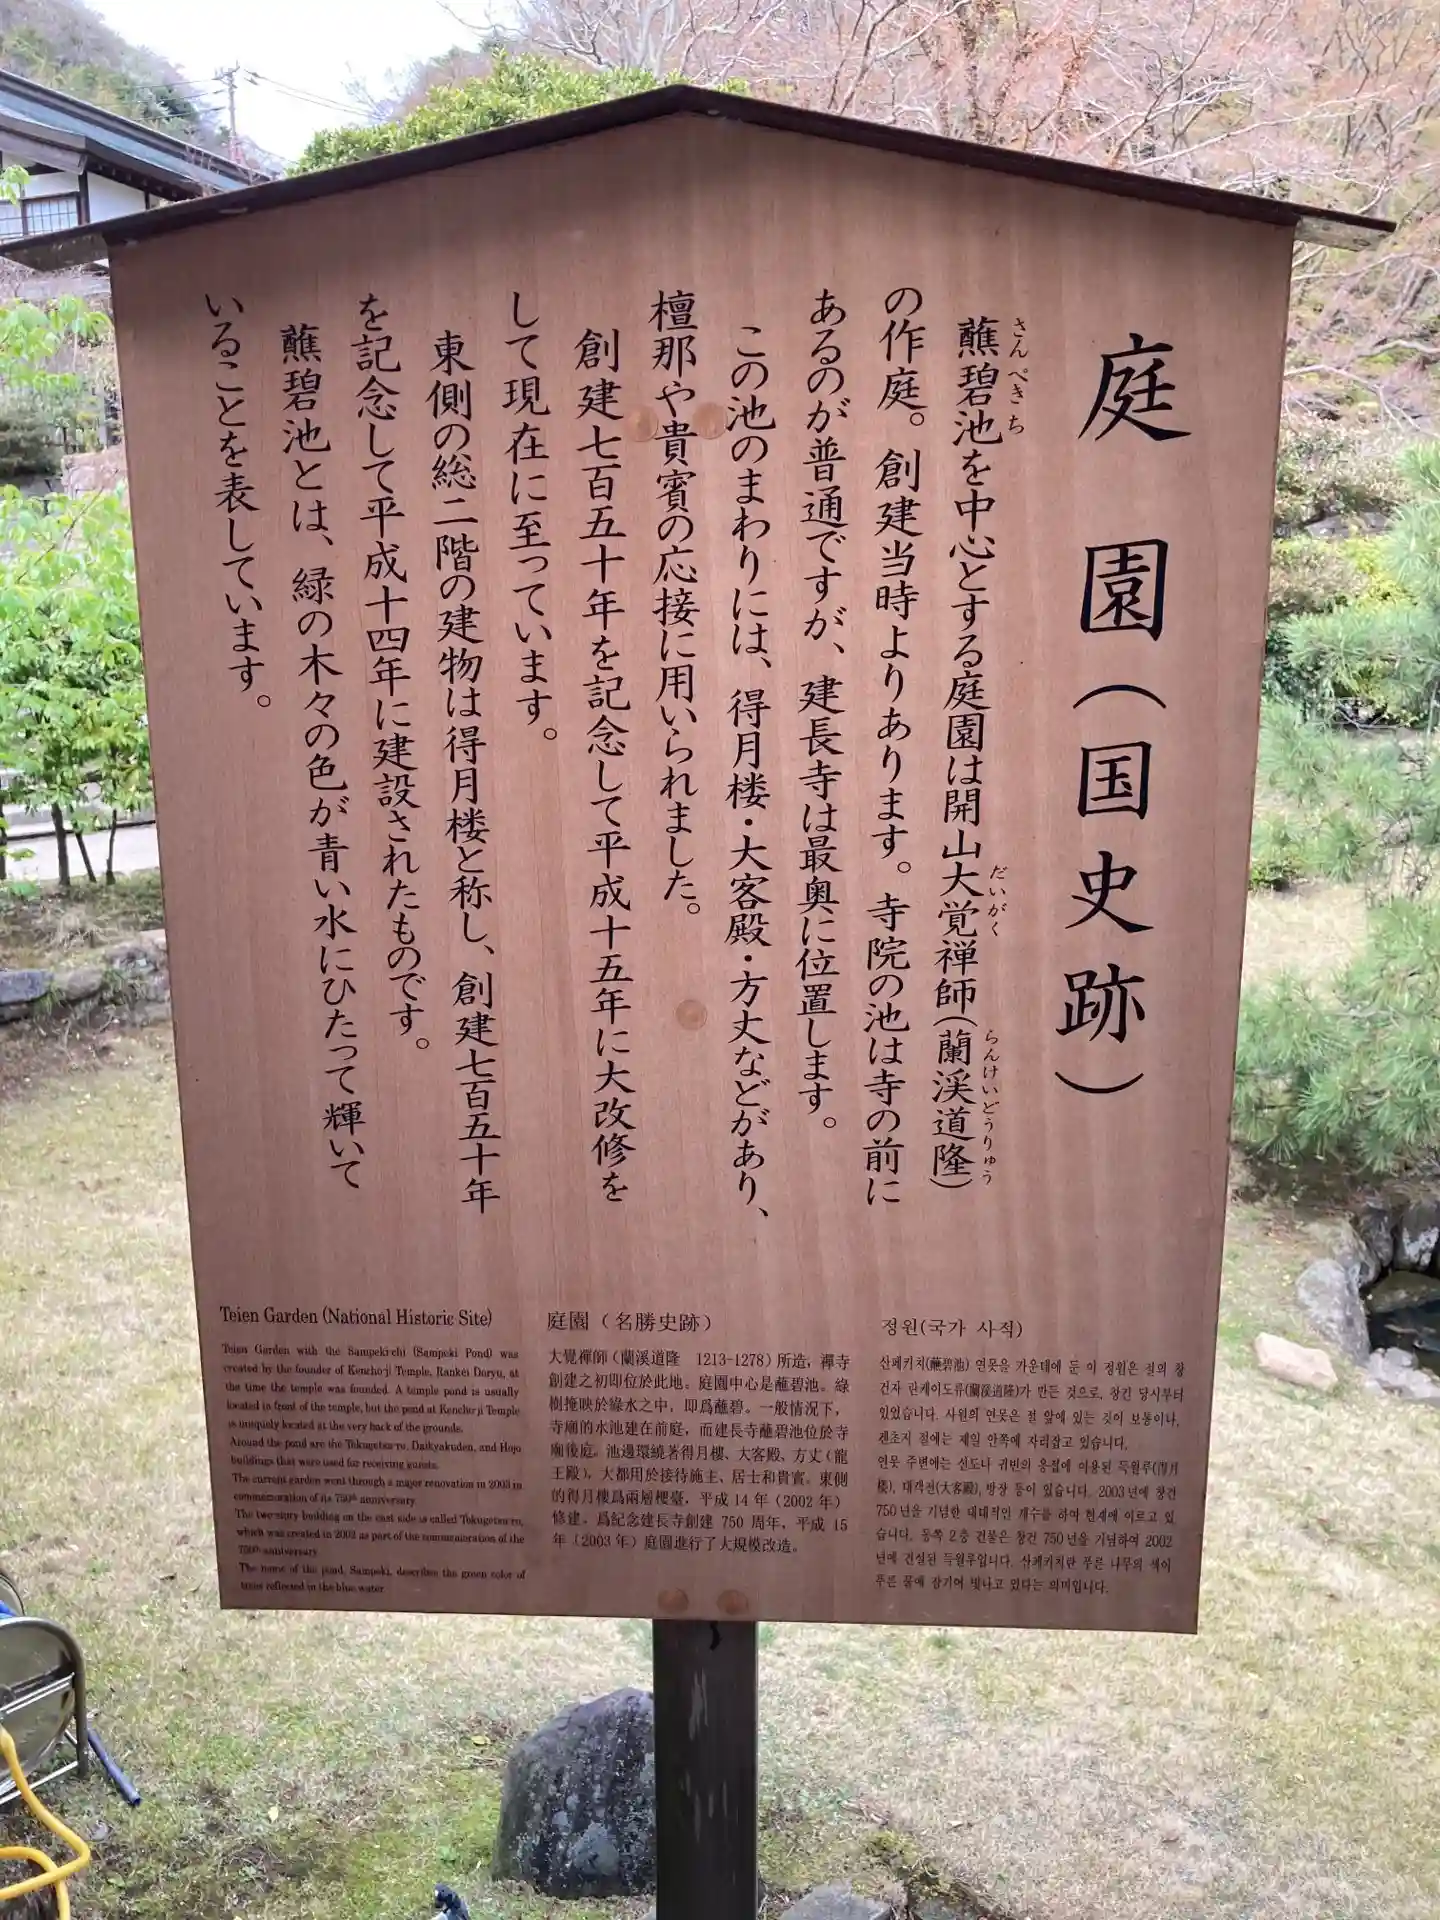 庭園（国史跡）
蘸碧池を中心とする庭園は開山大覚禅師（蘭渓道隆）
さんぺきち
だいがく
らんけいどうりゅう
の作庭。創建当時よりあります。寺院の池は寺の前に
あるのが普通ですが、建長寺は最奥に位置します。
この池のまわりには、得月楼・大客殿・方丈などがあり、
檀那や貴賓の応接に用いられました。
創建七百五十年を記念して平成十五年に大改修を
して現在に至っています。
東側の総二階の建物は得月楼と称し、創建七百五十年
を記念して平成十四年に建設されたものです。
蘸碧池とは、緑の木々の色が青い水にひたって輝いて
いることを表しています。
Teien Garden (National Historic Site)
Teien Garden with the Sampeki-chi (Sampeki Pond) was
created by the founder of Kencho-ji Temple, Rankei Doryu, at
the time the temple was founded. A temple pond is usually
located in front of the temple, but the pond at Kencho-ji Temple
is uniquely located at the very back of the grounds.
Around the pond are the Tokugetsu-ro, Daikyakuden, and Hojo
buildings that were used for receiving guests.
The current garden went through a major renovation in 2003 in
commemoration of its 750th anniversary.
The two-story building on the east side is called Tokugetsu-ro,
which was created in 2002 as part of the commemoration of the
750th anniversary.
The name of the pond, Sampeki, describes the green color of
trees reflected in the blue water.
庭園（名勝史跡）
大覺禪師（蘭溪道隆 1213-1278）所造，禪寺
創建之初即位於此地。庭園中心是蘸碧池。綠
樹掩映於綠水之中，即爲蘸碧。一般情況下，
寺廟的水池建在前庭，而建長寺蘸碧池位於寺
廟後庭。池邊環繞著得月樓、大客殿、方丈（龍
王殿），大都用於接待施主、居士和貴賓。東側
的得月樓爲兩層樓臺，平成 14 年（2002 年）
修建。爲紀念建長寺創建 750 周年，平成 15
年（2003 年）庭園進行了大規模改造。
정원(국가 사적)
산페키치(蘸碧池) 연못을 가운데에 둔 이 정원은 절의 창
건자 란케이도류(蘭溪道隆)가 만든 것으로, 창건 당시부터
있었습니다. 사원의 연못은 절 앞에 있는 것이 보통이나,
겐초지 절에는 제일 안쪽에 자리잡고 있습니다.
연못 주변에는 신도나 귀빈의 응접에 이용된 득월루(得月
樓), 대객전(大客殿), 방장 등이 있습니다. 2003년에 창건
750년을 기념한 대대적인 개수를 하여 현재에 이르고 있
습니다. 동쪽 2층 건물은 창건 750년을 기념하여 2002
년에 건설된 득월루입니다. 산페키치란 푸른 나무의 색이
푸른 물에 잠기어 빛나고 있다는 의미입니다.